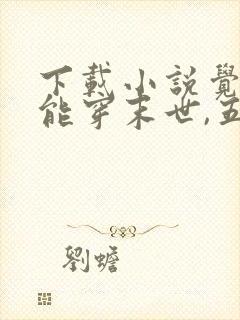 下載小說覺
能穿末世,五
劉蟾